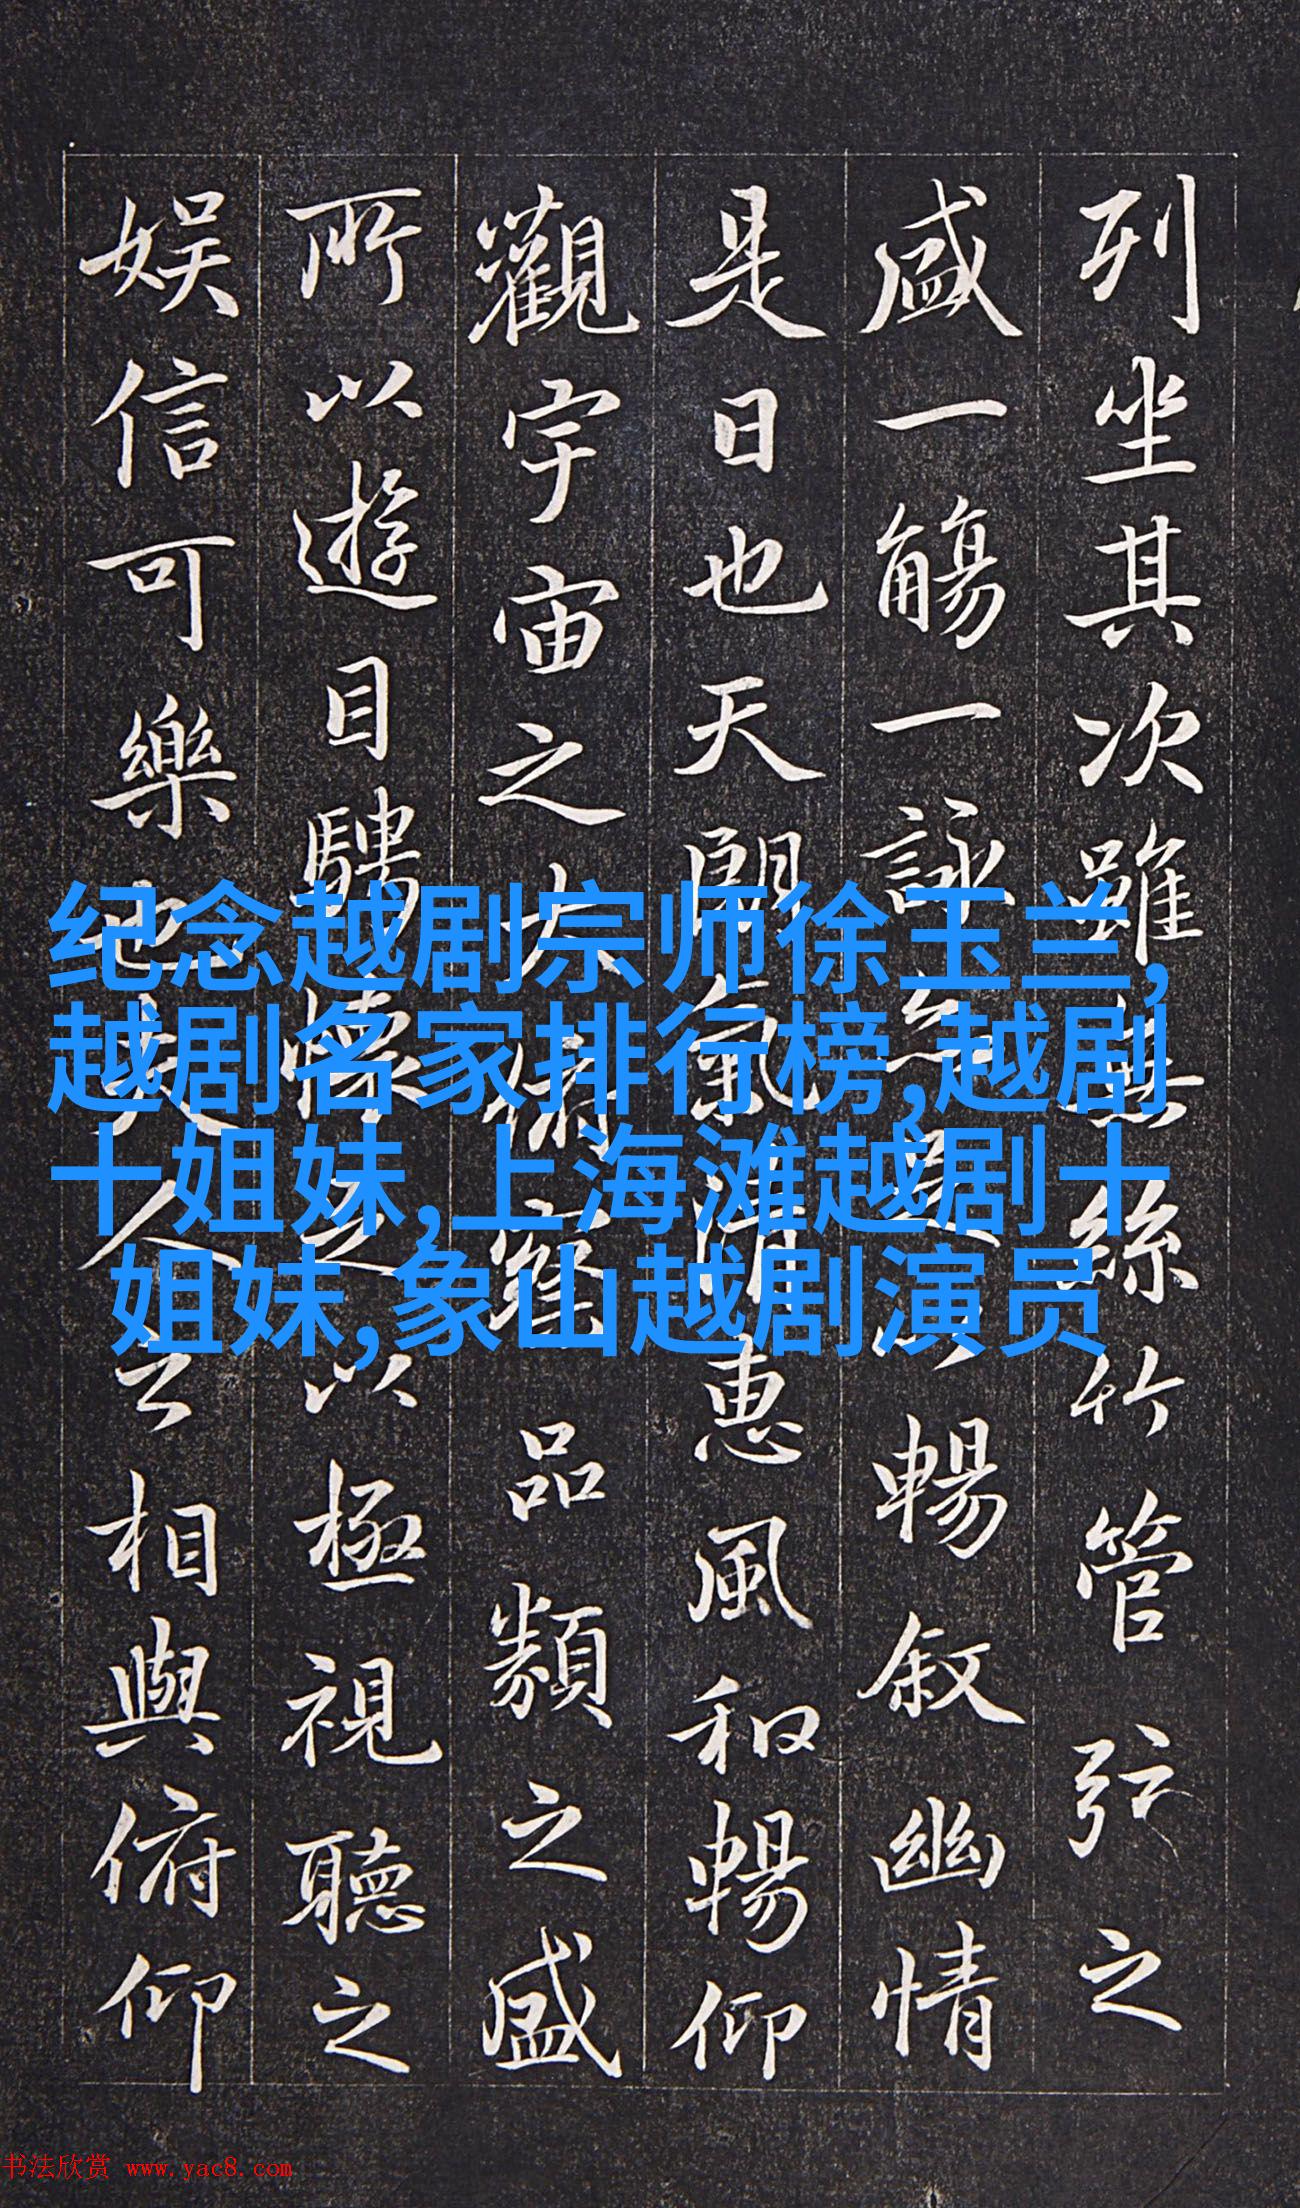 列坐其次雖無絲竹管弦之
盛一觴一詠亦足以暢叙幽情
是日也天朗氣清惠風和暢仰
觀宇宙之大俯察品類之盛
所以遊目騁懷足以極視聽之
娱信可樂也夫人之相與俯仰
纪念越剧宗师徐玉兰,
越剧名家排行榜,越剧
十姐妹,上海滩越剧十
姐妹,象山越剧演员
书法欣赏 www.yac8.com